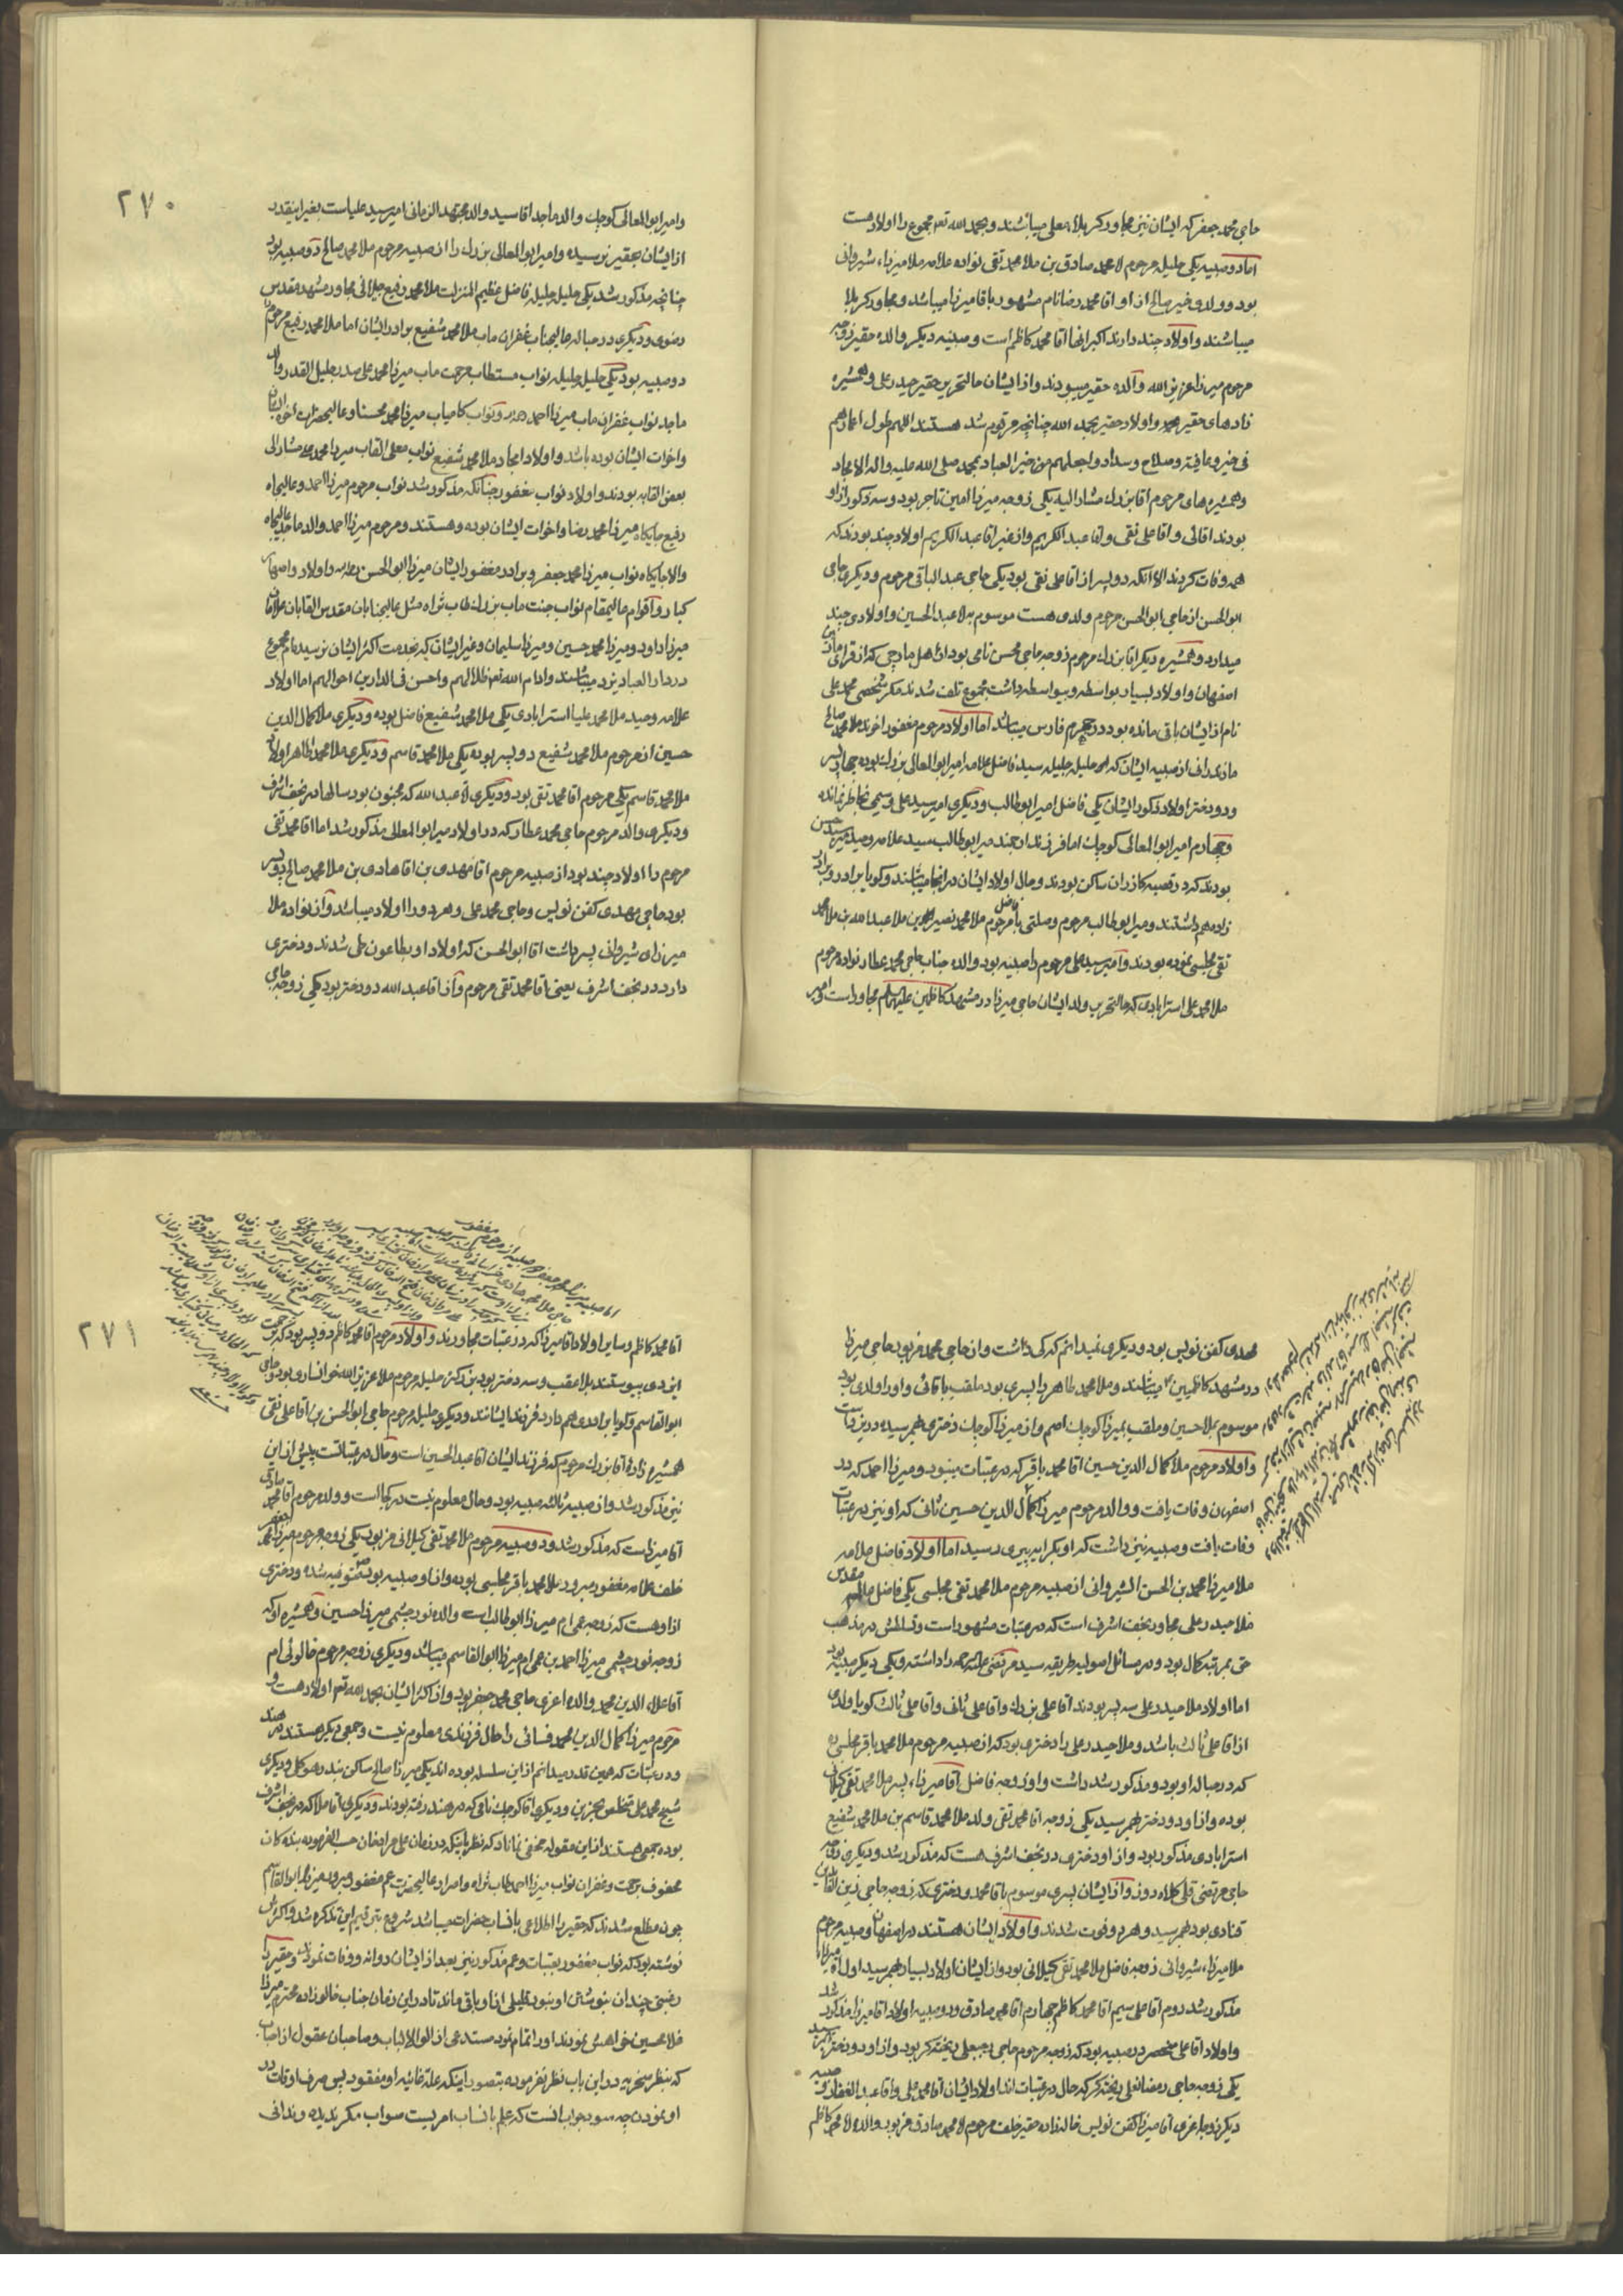 حاجی محمد جعفر که ایشان نیز مجاور کربلاء معلی میباشند و بحمد الله تعم مجموع را اولاد هست
اما دو صبیه یکی حلیله مرحوم لا محمد صادق بن ملا محمد تقی نواده علامه ملا میرزاء شیروانی
بود و ولدی خیر صالح از او اقا محمد رضا نام مشهور باقا میرزا میباشد و مجاور کربلا
میباشند و اولاد چند دارند اکبر انها اقا محمد کاظم است و صبیه دیگر والده حقیر زوجه
مرحوم میرزا عزیز الله والده حقیر میبودند و از ایشان حالتحریر حقیر حیدر علی و همشیره
زادهای حقیر و اولاد حقیر بحمد الله چنانچه مرقوم شد هستند اللهم طول اعمارهم
فی خیر و عافیة و صلاح و سداد و اجعلهم من خیر العباد بمحمد صلی الله علیه واله الامجاد
و همشیره های مرحوم اقا بزرك مشار الیه یکی زوجه میرزا امین تاجر بود و سه ذکور از او
بودند اقائی و اقا علی نقی و اقا عبد الکریم و از غیر اقا عبد الکریم اولاد چند بودند که
همه وفات کردند الا آنکه دو پسر از اقا علی نقی بود یکی حاجی عبد الباقی مرحوم و دیگری حاجی
ابو الحسن از حاجی ابو الحسن مرحوم ولدی هست موسوم بملا عبد الحسین و اولادی چند
میدارد و همشیره دیگر اقا بزرك مرحوم زوجه حاجی محسن نامی بود از اهل مارچی که از قرای
اصفهان و اولاد بسیار بواسطه و بیواسطه داشت مجموع تلف شدند مکر شخصی محمد علی
نام از ایشان باقی مانده بود در جهرم فارس میباشد اما اولاد مرحوم مغفور اخوند ملا محمد صالح
مازندرانی از صبیه ایشان که حلیله جلیله سید فاضل علامه امیر ابو المعالی بزرك بوده چهار پسر
و دو دختر اولاد ذکور ایشان یکی فاضل امیر ابو طالب و دیگری امیر سید علی و سیمی بخاطر نمانده
و چهارم امیر ابو المعالی کوچك اما فرزندان چند میر ابو طالب سید علامه وحید میر سید حسن
بودند که در قصبه کازران ساکن بودند و حال اولاد ایشان در انجا میباشند و کویا برادر و برادر
زاده هم داشتند و میر ابو طالب مرحوم وصلتی با مرحوم فاضل ملا محمد نصیر بن ملا عبد الله بن ملا محمد
تقی مجلسی نموده بودند و امیر سید علی مرحوم را صبیه بود والده جناب حاجی محمد عطار نواده مرحوم
ملا محمد علی استرابادی که حالتحریر ولد ایشان حاجی میرزا در مشهد کاظمین علیهما السلم مجاور است
۲۷۰
و امیر ابو المعالی کوچك والد ماجد اقا سید والد مجتهد الزمانی امیر سید علی است بغیر اینقدر
از ایشان بحقیر نرسیده و امیر ابو المعالی بزرك را از صبیه مرحوم ملا محمد صالح دو صبیه بود
چنانچه مذکور شد یکی حلیله جلیله فاضل عظیم المنزلت ملا محمد رفیع جیلانی مجاور مشهد مقدس
رضوی و دیگری در حباله عالیجناب غفران ماب ملا محمد شفیع برادر ایشان اما ملا محمد رفیع مرحوم را
دو صبیه بود یکی حلیله جلیله نواب مستطاب مرحمت ماب میرزا محمد علی صدر جلیل القدر والد
ماجد نواب غفران ماب میرزا احمد و نواب کامیاب میرزا محمد محسنا و عالیحضرات اخوان
و اخوات ایشان بوده باشد و اولاد امجاد ملا محمد شفیع نواب معلی القاب میرزا محمد مشار الی
بعض القابه بودند و اولاد نواب مغفور چنانکه مذکور شد نواب مرحوم میرزا احمد و عالیجاه
رفیع جایکاه میرزا محمد رضا و اخوات ایشان بوده و هستند و مرحوم میرزا احمد والد ماجد عالیجاه
والا جایکاه نواب میرزا محمد جعفر و برادر مغفور ایشان میرزا ابو الحسن بوده و اولاد و اصهار
کبار و اقوام عالیمقام نواب جنت ماب بزرك طاب ثراه مثل عالیجنابان مقدس القابان علامتان
میرزا داود و میرزا محمد حسین و میرزا سلیمان و غیر ایشان که بخدمت اکثر ایشان نرسیده ام مجموع
در دار العباد یزد میباشند و ادام الله تعم ظلالهم و احسن فی الدارین احوالهم اما اولاد
علامه وحید ملا محمد علیا استرابادی یکی ملا محمد شفیع فاضل بوده و دیگری ملا کمال الدین
حسین از مرحوم ملا محمد شفیع دو پسر بوده یکی ملا محمد قاسم و دیگری ملا محمد طاهر اولاد
ملا محمد قاسم یکی مرحوم آقا محمد تقی بود و دیگری اقا عبد الله که مجنون بود سالها در نجف اشرف
و دیگری والد مرحوم حاجی محمد عطار که در اولاد میر ابو المعالی مذکور شد اما اقا محمد تقی
مرحوم را اولاد چند بود از صبیه مرحوم اقا مهدی بن اقا هادی بن ملا محمد صالح دو پسر
بود حاجی مهدی کفن نویس و حاجی محمد علی و هر دو را اولاد میباشد و از نواده ملا
میرزای شیروانی پسر داشت اقا ابو الحسن که اولاد او بطاعون طی شدند و دختری
دارد در نجف اشرف یعنی اقا محمد تقی مرحوم و از اقا عبد الله دو دختر بود یکی زوجه حاجی
مهدی کفن نویس بود و دیگری نمیدانم که کی داشت و از حاجی محمد مزبور حاجی میرزا
در مشهد کاظمیین میباشند و ملا محمد طاهر را پسری بود ملقب باقائی و او را ولدی بود
موسوم بملا حسین و ملقب بمیرزا کوچك اصم و از میرزا کوچك دختری بهم رسیده در یزد است
و اولاد مرحوم ملا کمال الدین حسین اقا محمد باقر که در عتبات مینبود و میرزا احمد که در
اصفهان وفات یافت و والد مرحوم میرزا کمال الدین حسین ثانی که او نیز در عتبات
وفات یافت و صبیه نیز داشت که او بکر ابه پیری رسید اما اولاد فاضل علامه
ملا میرزا محمد بن الحسن الشیروانی از صبیه مرحوم ملا محمد تقی مجلسی یکی فاضل مقدس
ملا حیدر علی مجاور نجف اشرف است که در عتبات مشهور است و تسلطش در مذهب
حق بمرتبه کمال بود و در مسائل اصولیه طریقه سید مرتضی علیه الرحمه را داشته و یکی دیگر صبیه بود
اما اولاد ملا حیدر علی سه پسر بودند آقا علی بزرك و اقا علی ثانی و اقا علی ثالث کویا ولدی
از اقا علی ثالث باشد و ملا حیدر علی را دختری بود که از صبیه مرحوم ملا محمد باقر مجلسی ره
که در حباله او بود و مذکور شد داشت و او زوجه فاضل آقا میرزاء پسر ملا محمد تقی کیلانی
بوده و از او دو دختر بهمرسید یکی زوجه اقا محمد تقی ولد ملا محمد قاسم بن ملا محمد شفیع
استرابادی مذکور بود و از او دختری در نجف اشرف هست که مذکور شد و دیگری زوجه
حاجی مرتضی قلی کلاه دوز و از ایشان پسری موسوم باقا محمد و دختری که زوجه حاجی زین العابدین
قنادی بود بهمرسید و هر دو فوت شدند و اولاد ایشان هستند در اصفهان و صبیه مرحوم
ملا میرزاء شیروانی زوجه فاضل ملا محمد تقی کیلانی بود و از ایشان اولاد بسیار بهمرسید اول آقا میرزا
مذکور شد دوم آقا علی سیم آقا محمد کاظم چهارم آقا محمد صادق و دو صبیه اولاد اقا میرزا مذکور شد
و اولاد آقا علی منحصر در صبیه بود که زوجه مرحوم حاجی رجبعلی ریخته کر بود و از او دو دختر بهم رسید
یکی زوجه حاجی رمضانعلی ریخته کر که حال در عتبات اند اولاد ایشان آقا محمد علی و اقا عبد الغفار و صبیه
دیگر زوجه اعزی آقا میرزا کفن نویس خاله زاده حقیر خلف مرحوم لا محمد صادق مزبور و والده لا محمد کاظم
۲۷۱
آقا محمد کاظم و سایر اولاد اقا میرزا که در عتبات مجاورند و اولاد مرحوم آقا محمد کاظم دو پسر بود که در
این دی پیوستند بلا عقب و سه دختر بود بزرکتر حلیله مرحوم ملا عزیز الله خوانساری بود و حاجی
ابو القاسم و کویا برادری هم دارد فرزند ایشانند و دیگری حلیله مرحوم حاجی ابو الحسن بن اقا علی نقی
همشیره زادهٔ آقا بزرك مرحوم که فرزند ایشان اقا عبد الحسین است و حال در عتباتست پیش از این
نیز مذکور شد و از صبیه ثالثه صبیه بود و حال معلوم نیست در کجا است و ولد مرحوم آقا محمد صادق
آقا میرزاست که مذکور شد و دو صبیه مرحوم ملا محمد تقی کیلانی مزبور یکی زوجه مرحوم میرزا محمد جعفر
خلف علامه مغفور مبرور ملا محمد باقر مجلسی بوده و از او صبیه بود متوفیه شده و دختری
از او هست که زوجه عمی ام میرزا ابو طالب است والده نور چشمی میرزا حسین و همشیره او که
زوجه نور چشمی میرزا احمد بن عمی ام میرزا ابو القاسم میباشد و دیگری زوجه مرحوم خالوئی ام
آقا علاء الدین محمد والده اعزی حاجی محمد جعفر بود و از اکثر ایشان بحمد الله تعم اولاد هست و
مرحوم میرزا کمال الدین محمد فسائی را حال فرزندی معلوم نیست و جمعی دیگر هستند در هند
و در عتبات که همین قدر میدانم از این سلسله بوده اند یکی میرزا صالح ساکن بندر هوکلی و دیگری
شیخ محمد علی متخلص بحزین و دیگری اقا کوچك نامی که در هند رفته بودند و دیگری آقا ملا که در نجف اشرف
بوده جمعی هستند از این مقوله مخفی نماناد که نظر باینکه در زمان علی مراد خان حسب الفرموده بندکان
محفوف برحمت و غفران نواب میرزا احمد طاب ثراه و اصرار عالیحضرت عم مغفور مبرور میرزا ابو القاسم
چون مطلع شدند که حقیر را اطلاعی بانساب حضرات میباشد شروع بترقیم این تذکره شد و اکثرش
نوشته بود که نواب مغفور بعتبات و عم مذکور نیز بعد از ایشان روانه و وفات نمودند و حقیر را
رغبتی چندان بنوشتن او نبود قلیلی از او باقی ماند تا در این زمان جناب خالو زاده محترم میرزا
غلامحسین خواهش نمودند او را تمام نمود مستدعی از اولو الالباب و صاحبان عقول از احباب
که بنظر سخریه در این باب نظر نفرموده بتصور اینکه علة غائیه او مفقود پس صرف اوقات در
او نمودن چه سود جواب انست که علم بانساب امریست صواب مکر ندیده و ندانی